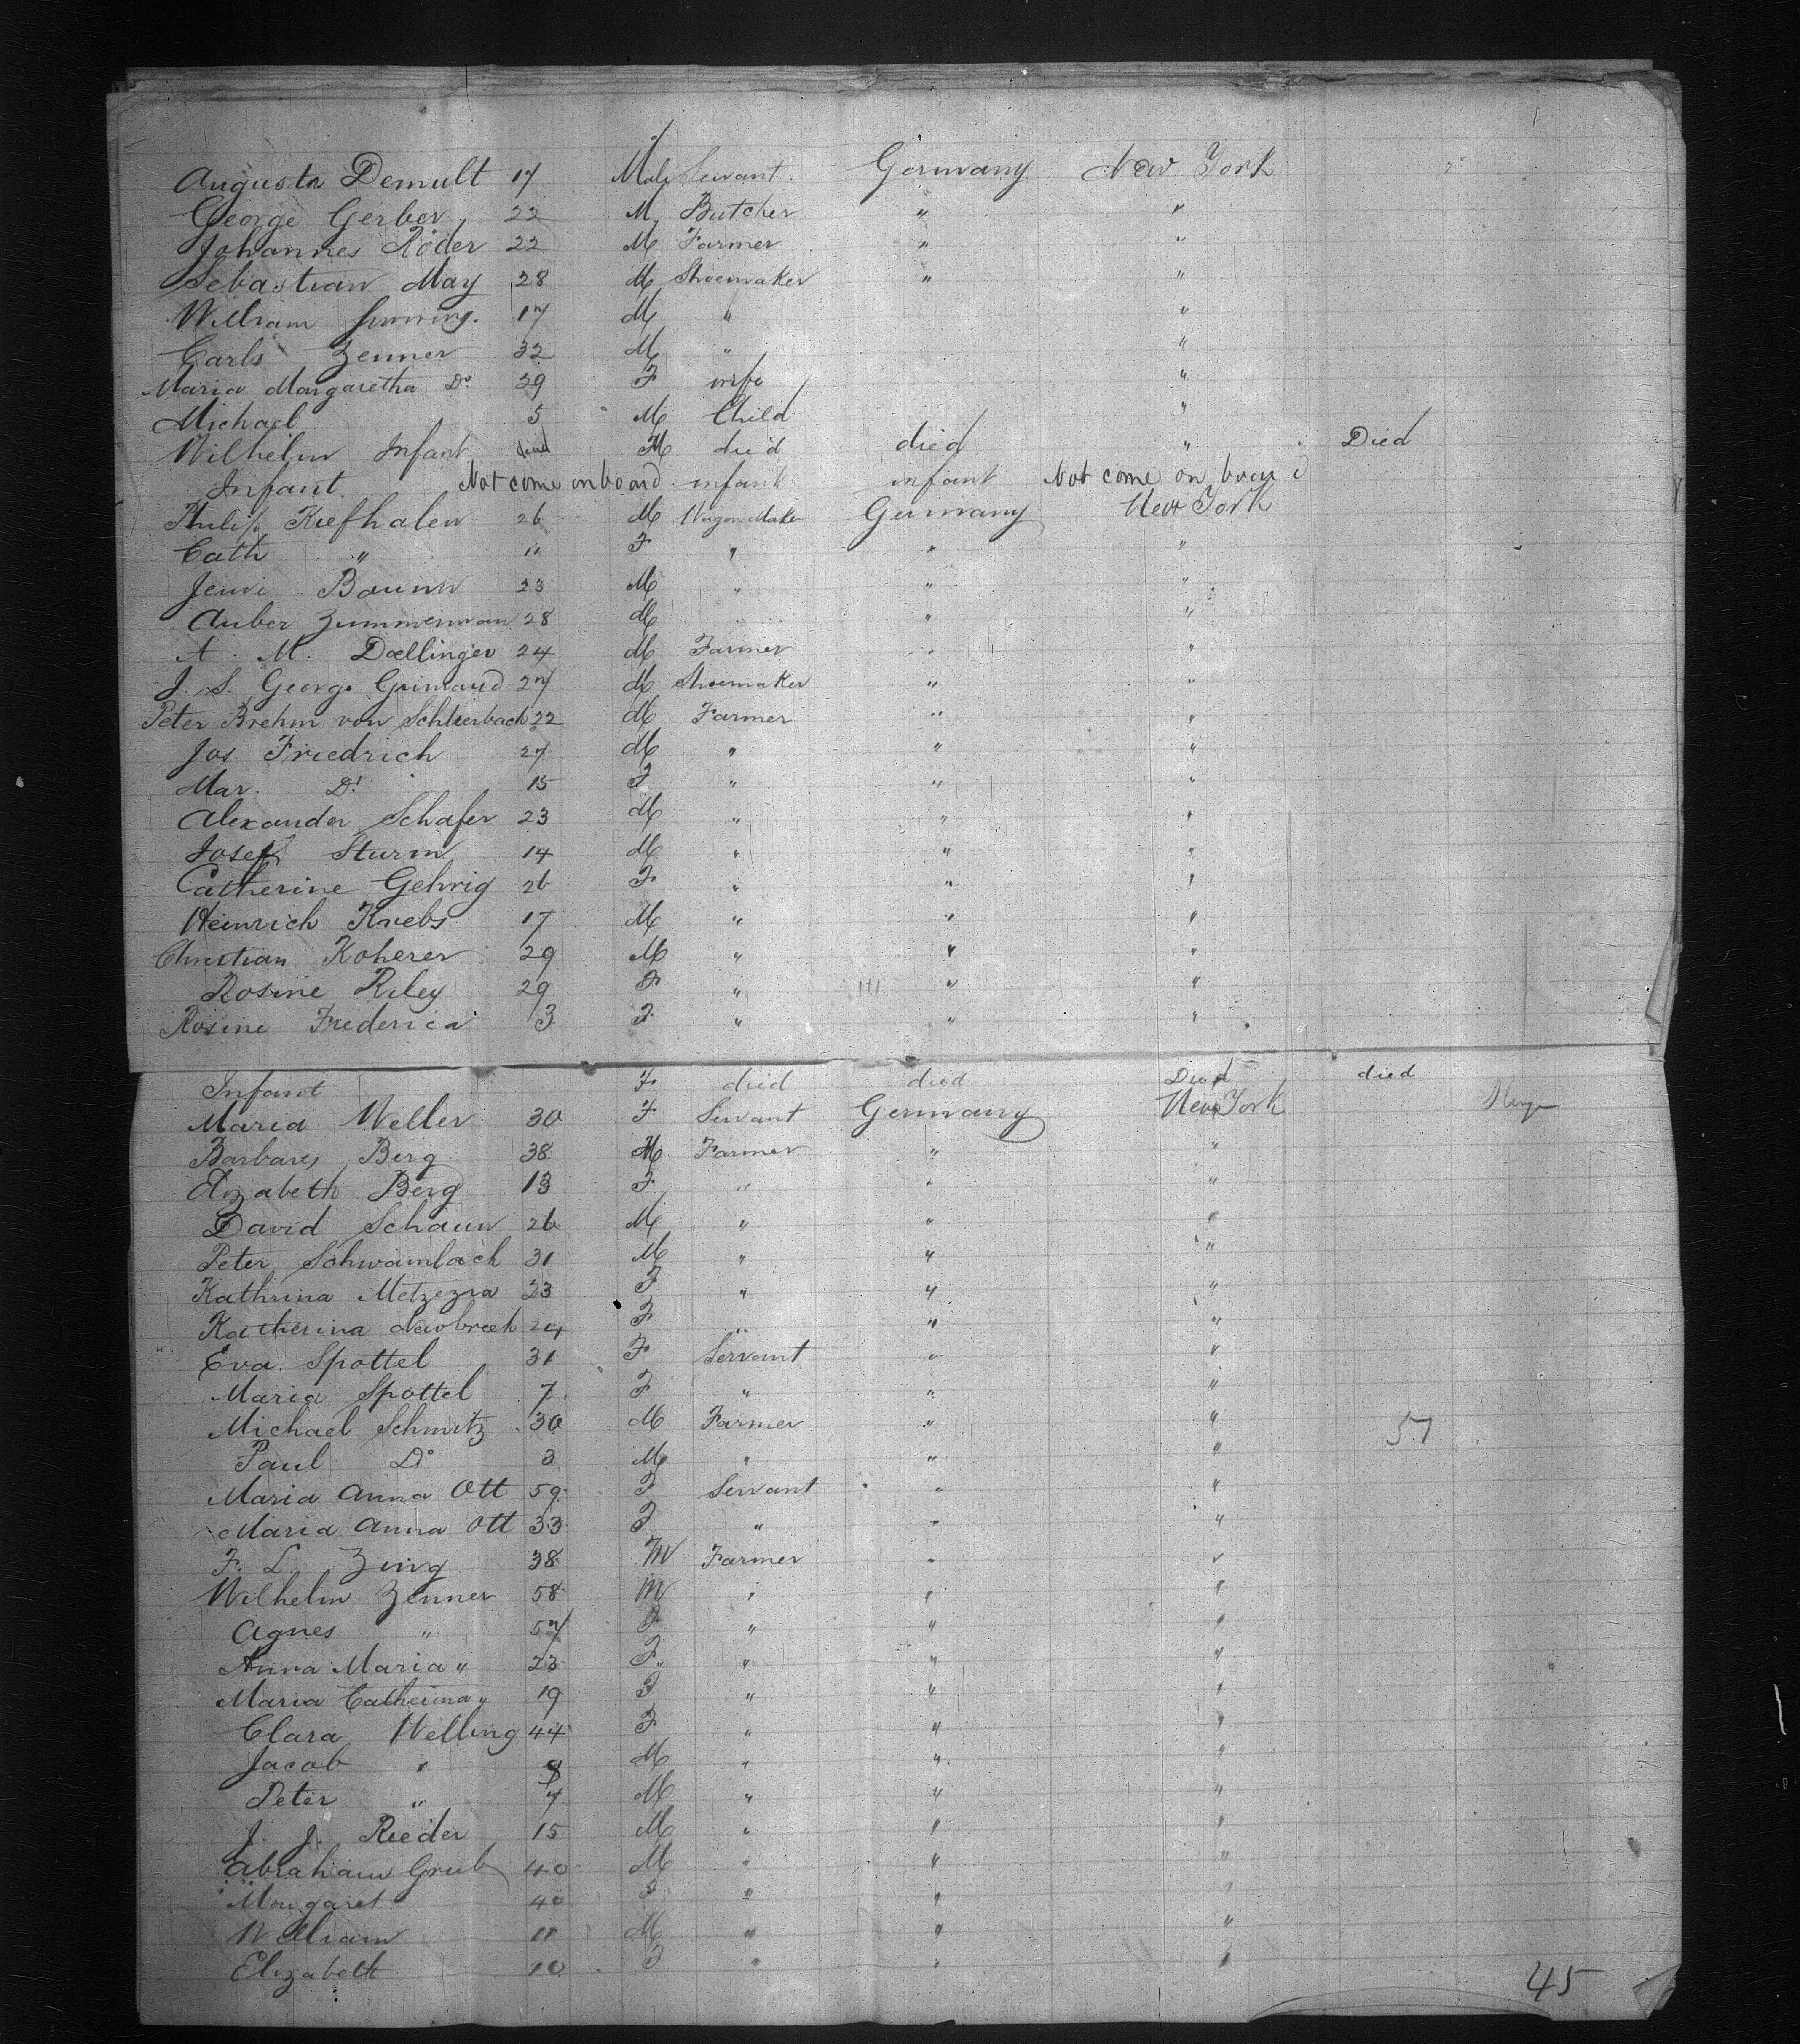 Augusta Demult 17 Male Servant Germany New York
George Gerber 22 M Butcher " "
Johannes Röder 22 M Farmer " "
Sebastian May 28 M Shoemaker " "
William 17 M " "
Carls Zenner 32 M " "
Maria Margaretha Do 29 F wife "
Michael 5 M Child "
Wilhelm Infant dead M died died " Died
Infant. Not come on board infant infant Not come on board
Philip Kiefhalen 26 M Wagon Maker Germany New York
Cath " 11 F " " "
23 M " " "
Zummerman 28 M " " "
A. M. Dællinger 24 M Farmer " "
J. S. George Grimaud 27 M Shoemaker " "
Peter Brehm von Schlierbach 22 M Farmer " "
Jos. Friedrich 27 M " " "
Mar. Do 15 F " " "
Alexander Schafer 23 M " " "
Josef Sturm 14 M " " "
Catherine Gehrig 26 F " " "
Heinrich Krebs 17 M " " "
Christian Koherer 29 M " " "
Rosine Riley 29 F " " "
Rosine Frederica 3 F " " "
Infant F died died Died died
Maria Weller 30 F Servant Germany New York
Berg 38 M Farmer " "
Elizabeth Berg 13 F " " "
David Schaun 26 M " " "
Peter Schwambach 31 M " " "
Kathrina Metzezra 23 F " " "
Katherina 24 F " " "
Eva Spottel 31 F Servant " "
Maria Spottel 7 F " " "
Michael Schmitz 30 M Farmer " " 57
Paul Do 3 M " " "
Maria Anna Ott 59 F Servant " "
Maria Anna Ott 33 F " " "
F. L. Zing 38 M Farmer " "
Wilhelm Zenner 58 M " " "
Agnes " 57 F " " "
Anna Maria " 23 F " " "
Maria Catherina " 19 F " " "
Clara Welling 44 F " " "
Jacob " 8 M " " "
Peter " 7 M " " "
J. J. Rieder 15 M " " "
Abraham Grub 40 M " " "
Margaret 40 F " " "
William 11 M " " "
Elizabeth 10 F " " "
45